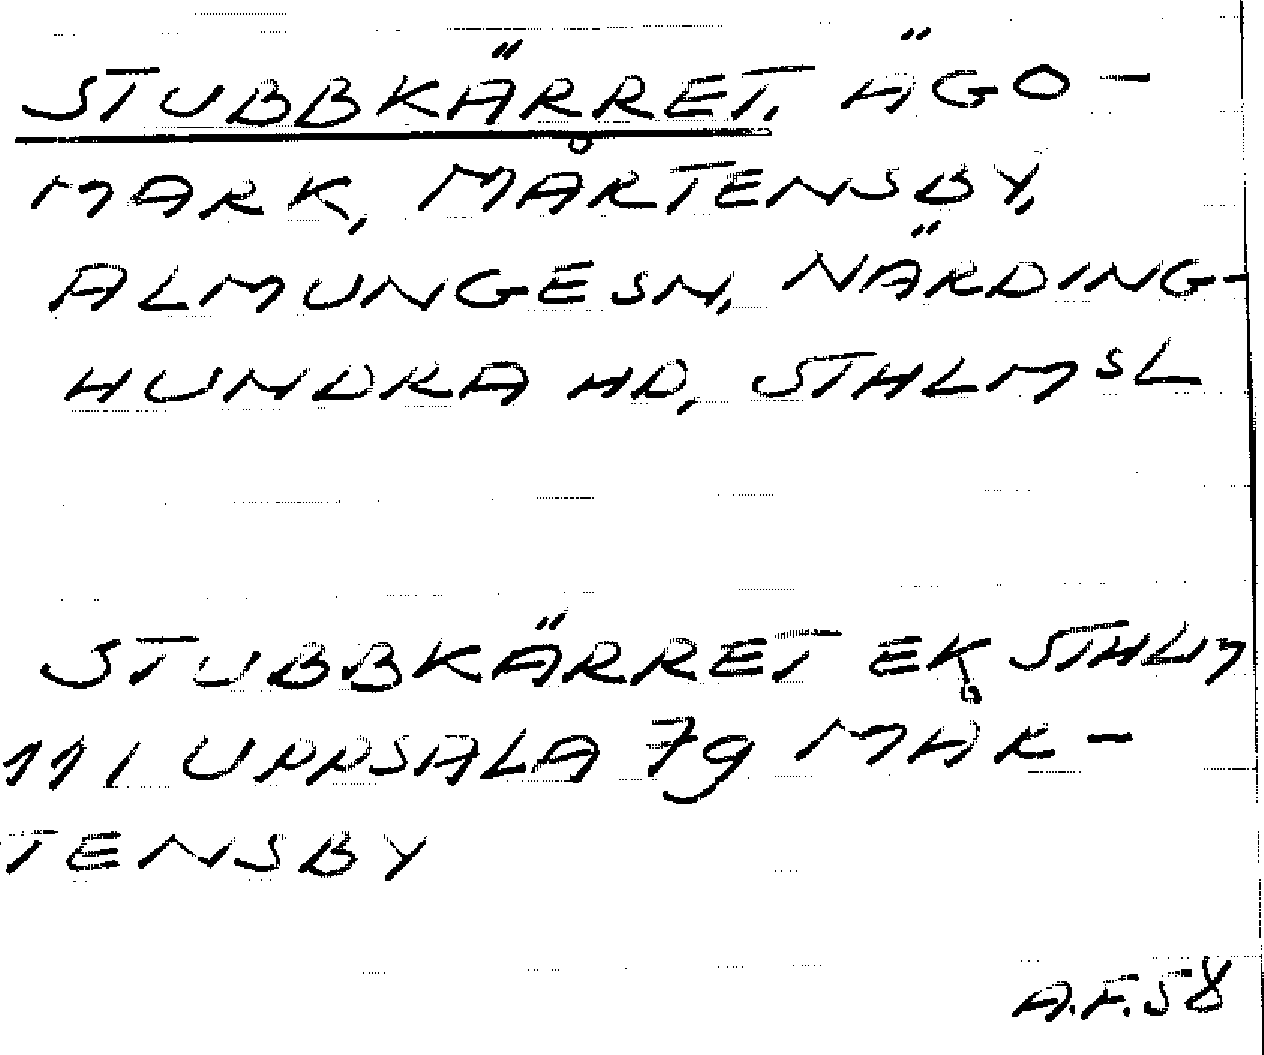 STUBBKÄRRET, ÄGO-
MARK, MÅRTENSBY,
ALMUNGESN, NÄRDING-
HUNDRA HD, STHLMSL
STUBBKÄRRET EK STHLM
111 UPPSALA 7g MÅR-
TENSBY
A.F.58